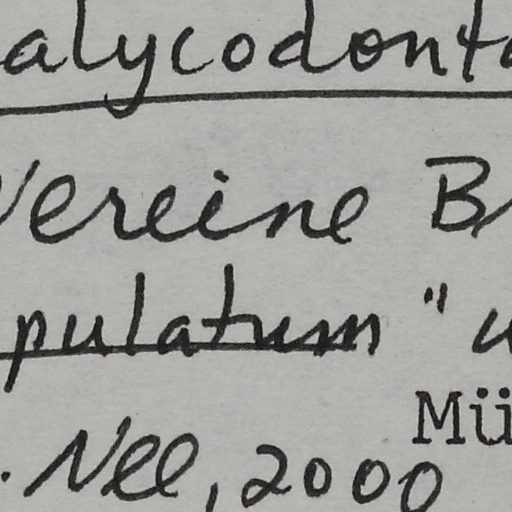 alycodonta
Vereine B
pulatum" u
Mü
. Nee, 2000